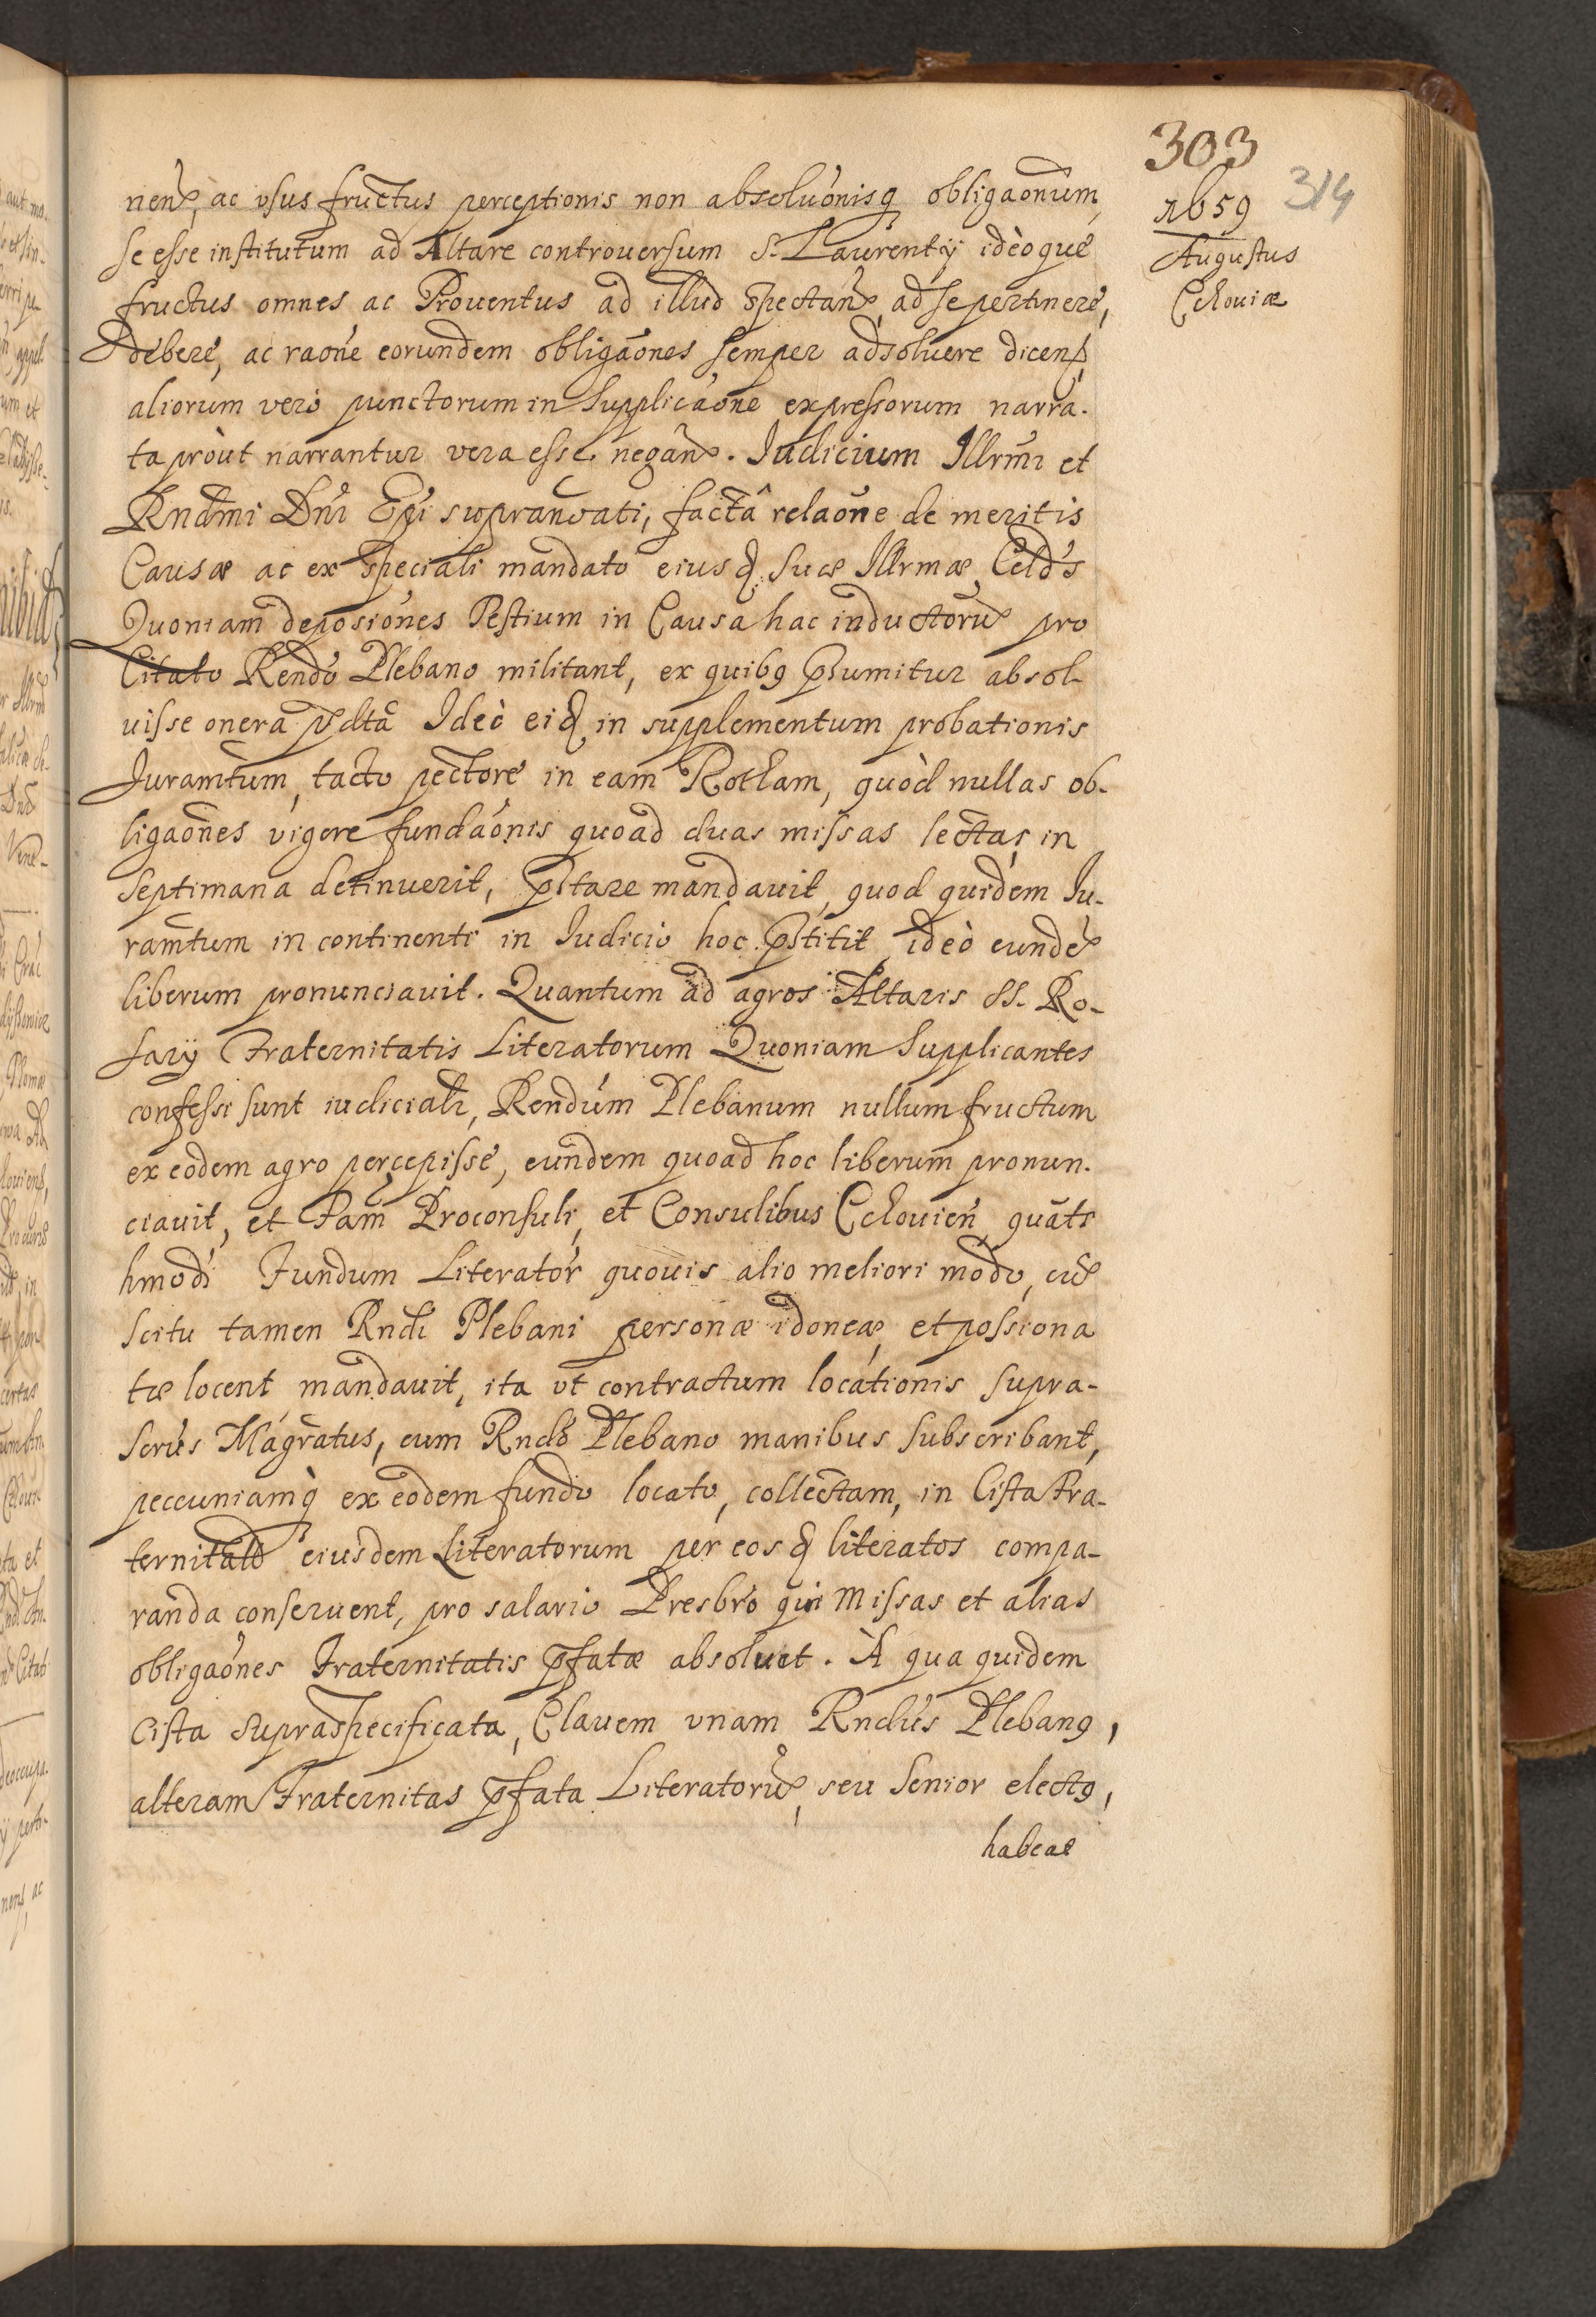 303
314
1659
Augustus
Cchoviæ
nen, ac usus fructus perceptionis non absoluónisq obligaonum,
se esse institutum ad Altare controuersum S. Laurentij ideòque
fructus omnes ac Prouentus ad illud spectan, ad se pertinere,
debere, ac raóne eorundem obligaónes semper adsoluere dicen,
aliorum verò punctorum in Supplicaóne expressorum narra-
ta pròut narrantur vera esse negan. Iudicium Illrmi et
Rndmi Dni Epi supranoati, factâ relaóne de meritis
Causæ ac ex speciali mandato eiusd Suæ Illrmæ Celds
Quoniam deposiónes Testium in Causa hac inductoru pro
Citato Rendo Plebano militant, ex quibq psumitur absol-
uisse onera pdta Ideò eid in supplementum probationis
Iuramtum, tacto pectore in eam Rotham, quòd nullas ob-
ligaónes vigore fundaónis quoad duas missas lectas in
septimana detinuerit, pstare mandauit, quod quidem Iu-
ramtum in continenti in Iudicio hoc pstitit ideò eunde
liberum pronunciauit. Quantum ad agros Altaris SS. Ro-
sarij Fraternitatis Literatorum Quoniam Supplicantes
confessi sunt iudicialr, Rendum Plebanum nullum fructum
ex eodem agro percepisse, eundem quoad hoc liberum pronun-
ciauit, et Fam Proconsuli, et Consulibus Cchouien, quats
hmodi Fundum Literator quouis alio meliori modo, cu
scitu tamen Rndi Plebani personæ idoneæ, et possiona
tæ locent mandauit, ita ut contractum locationis supra-
scrus Magratus, cum Rndo Plebano manibus subscribant,
peccuniamq ex eodem fundo locato, collectam, in Cista Fra-
ternitats eiusdem Literatorum per eosd literatos compa-
randa conseruent, pro salario Presbro qui Missas et alias
obligaónes Fraternitatis pfatæ absoluet. À qua quidem
Cista supraspecificata, Clauem unam Rndus Plebanq,
alteram Fraternitas pfata Literatoru, seu Senior electq,
habeat